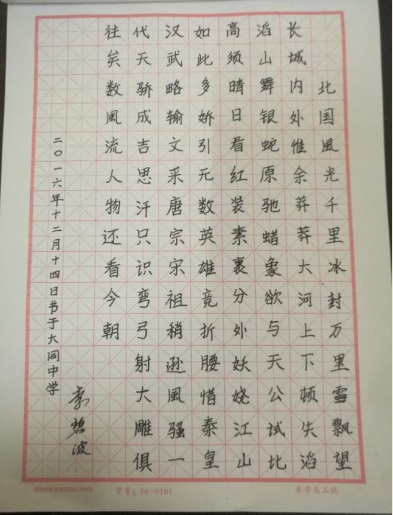 北国風光千里冰封万里雪飘望
长城内外惟余莽莽大河上下顿失滔
滔山舞银蛇原驰蜡象欲与天公试比
高须晴日看红装素裹分外妖娆江山
如此多娇引无数英雄竞折腰惜秦皇
汉武略输文采唐宗宋祖稍逊風骚一
代天骄成吉思汗只识弯弓射大雕俱
往矣数風流人物还看今朝
二〇一六年十二月十四日书于大同中学
李碧波